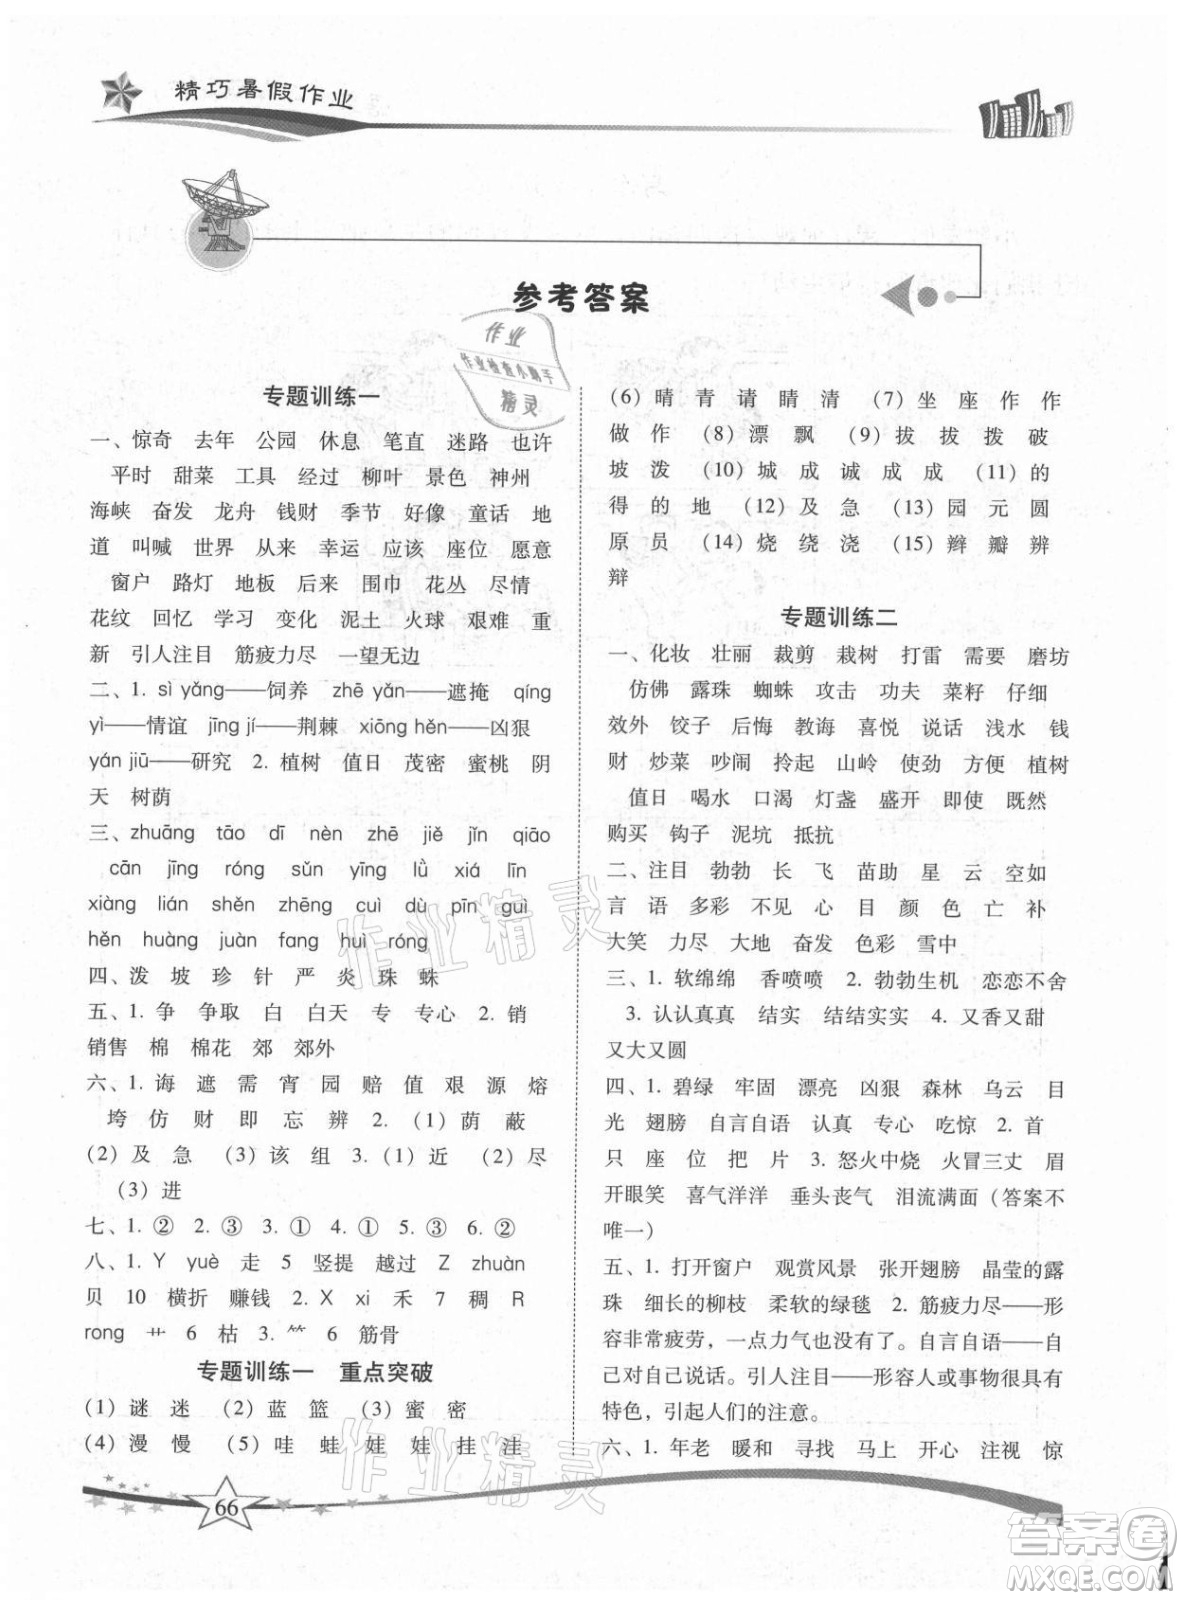 精巧暑假作业
参考答案
专题训练一
一、惊奇 去年 公园 休息 笔直 迷路 也许
平时 甜菜 工具 经过 柳叶 景色 神州
海峡 奋发 龙舟 钱财 季节 好像 童话 地
道 叫喊 世界 从来 幸运 应该 座位 愿意
窗户 路灯 地板 后来 围巾 花丛 尽情
花纹 回忆 学习 变化 泥土 火球 艰难 重
新 引人注目 筋疲力尽 一望无边
二、1. sì yǎng——饲养 zhē yǎn——遮掩 qíng
yì——情谊 jīng jí——荆棘 xiōng hěn——凶狠
yán jiū——研究 2. 植树 值日 茂密 蜜桃 阴
天 树荫
三、zhuāng tāo dī nèn zhē jiě jǐn qiāo
cān jīng róng sǔn yīng lǜ xiá līn
xiàng lián shén zhēng cuì dù pīn guì
hěn huàng juàn fang huì róng
四、泼 坡 珍 针 严 炎 珠 蛛
五、1. 争 争取 白 白天 专 专心 2. 销
销售 棉 棉花 郊 郊外
六、1. 诲 遮 需 宵 园 赔 值 艰 源 熔
垮 仿 财 即 忘 辨 2. (1) 荫 蔽
(2) 及 急 (3) 该 组 3. (1) 近 (2) 尽
(3) 进
七、1. ② 2. ③ 3. ① 4. ① 5. ③ 6. ②
八、1. Y yuè 走 5 竖提 越过 Z zhuàn
贝 10 横折 赚钱 2. X xi 禾 7 稠 R
rong 艹 6 枯 3. ⺮ 6 筋骨
专题训练一 重点突破
(1) 谜 迷 (2) 蓝 篮 (3) 蜜 密
(4) 漫 慢 (5) 哇 蛙 娃 娃 挂 洼
(6) 晴 青 请 睛 清 (7) 坐 座 作 作
做 作 (8) 漂 飘 (9) 拔 拔 拨 破
坡 泼 (10) 城 成 诚 成 成 (11) 的
得 的 地 (12) 及 急 (13) 园 元 圆
原 员 (14) 烧 绕 浇 (15) 辫 瓣 辨
辩
专题训练二
一、化妆 壮丽 裁剪 栽树 打雷 需要 磨坊
仿佛 露珠 蜘蛛 攻击 功夫 菜籽 仔细
效外 饺子 后悔 教诲 喜悦 说话 浅水 钱
财 炒菜 吵闹 拎起 山岭 使劲 方便 植树
值日 喝水 口渴 灯盏 盛开 即使 既然
购买 钩子 泥坑 抵抗
二、注目 勃勃 长 飞 苗助 星 云 空如
言 语 多彩 不见 心 目 颜 色 亡 补
大笑 力尽 大地 奋发 色彩 雪中
三、1. 软绵绵 香喷喷 2. 勃勃生机 恋恋不舍
3. 认认真真 结实 结结实实 4. 又香又甜
又大又圆
四、1. 碧绿 牢固 漂亮 凶狠 森林 乌云 目
光 翅膀 自言自语 认真 专心 吃惊 2. 首
只 座 位 把 片 3. 怒火中烧 火冒三丈 眉
开眼笑 喜气洋洋 垂头丧气 泪流满面（答案不
唯一）
五、1. 打开窗户 观赏风景 张开翅膀 晶莹的露
珠 细长的柳枝 柔软的绿毯 2. 筋疲力尽——形
容非常疲劳，一点力气也没有了。自言自语——自己
对自己说话。引人注目——形容人或事物很具有
特色，引起人们的注意。
六、1. 年老 暖和 寻找 马上 开心 注视 惊
66
作业
作业检查小助手
精灵
作业精灵
作业精灵
答案卷
MXQE.COM